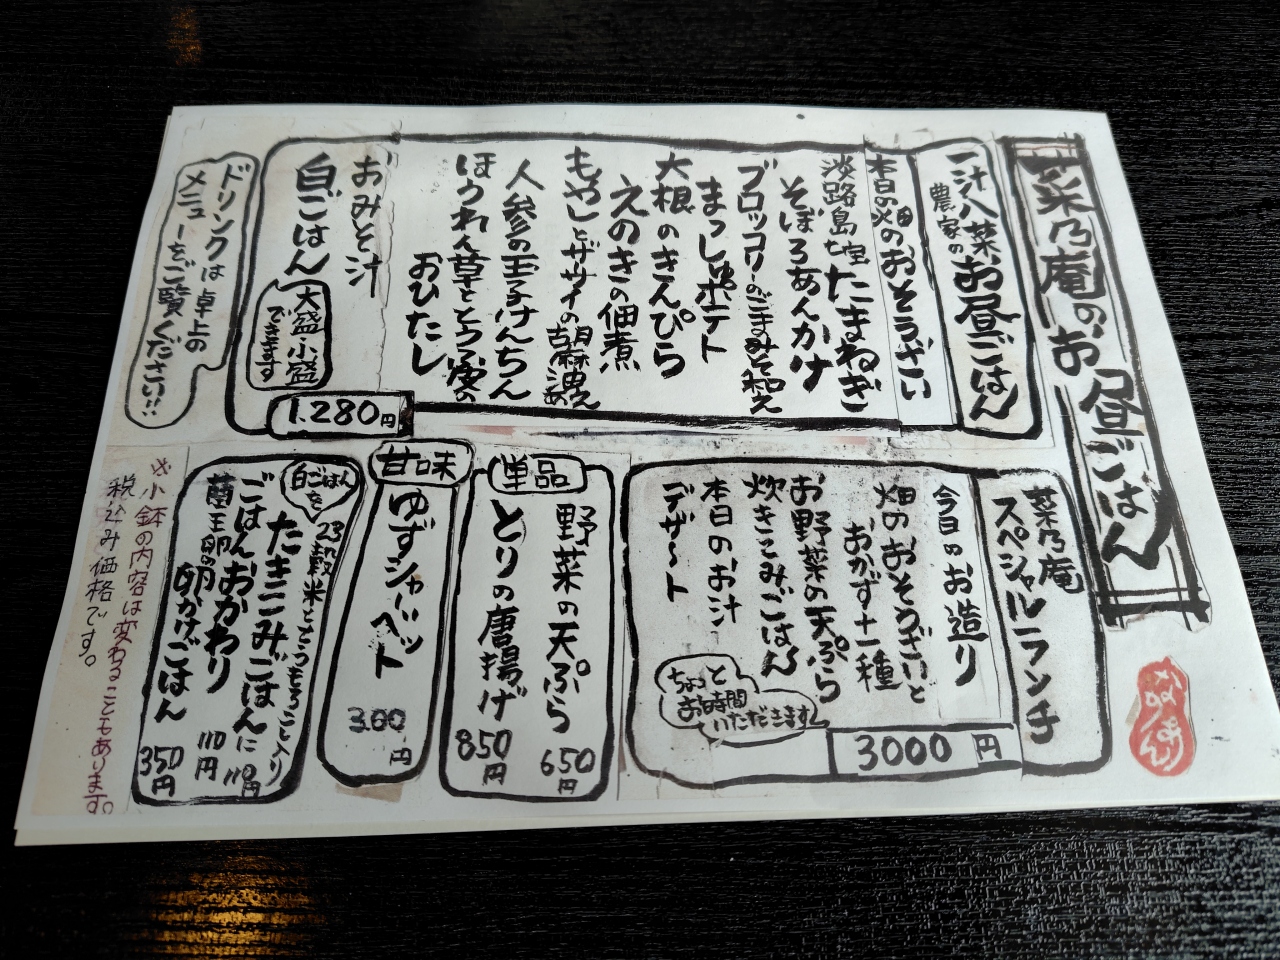 菜乃庵のお昼ごはん
一汁八菜
農家のお昼ごはん
本日の畑のおそうざい
淡路島産たまねぎ
そぼろあんかけ
ブロッコリーのごまみそ和え
まっしゅポテト
大根のきんぴら
えのきの佃煮
もやしとザーサイの胡麻和え
人参の玉子けんちん
ほうれん草ととうふの
おひたし
おみそ汁
白ごはん
大盛・小盛
できます
1.280円
ドリンクは卓上の
メニューをご覧ください!!
菜乃庵
スペシャルランチ
今日のお造り
畑のおそうざいと
おかず十一種
お野菜の天ぷら
炊きこみごはん
本日のお汁
デザート
ちょっと
お時間
いただきます
3000円
単品
野菜の天ぷら 650円
とりの唐揚げ 850円
甘味
ゆずシャーベット
300円
白ごはんを
23穀米とうもろこし入り
たきこみごはんに 110円
ごはんおかわり 110円
卵かけごはん 350円
※小鉢の内容は変わることもあります。
税込み価格です。